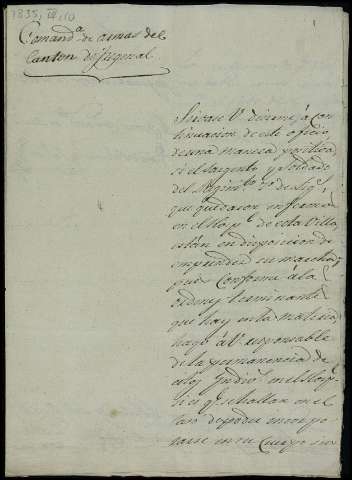 1835, III, 10
Comandª. de armas del
Canton de Fregenal
Sirvase V. decirme á con
tinuacion de este oficio
de una manera positiva
si el Sargento y soldado
del Regimto. 7º. de
que quedaron enfermos
en el Hospl. de esta Villa
están en disposicion de
emprender su marcha
pues conforme á la
ordenes terminante
que hay en la materia
hago á V. responsable
de la permanencia de
estos Yndivs. en el Hospl.
si es qe. se hallan en el
caso de poder incorpo
rarse en su Cuerpo sin